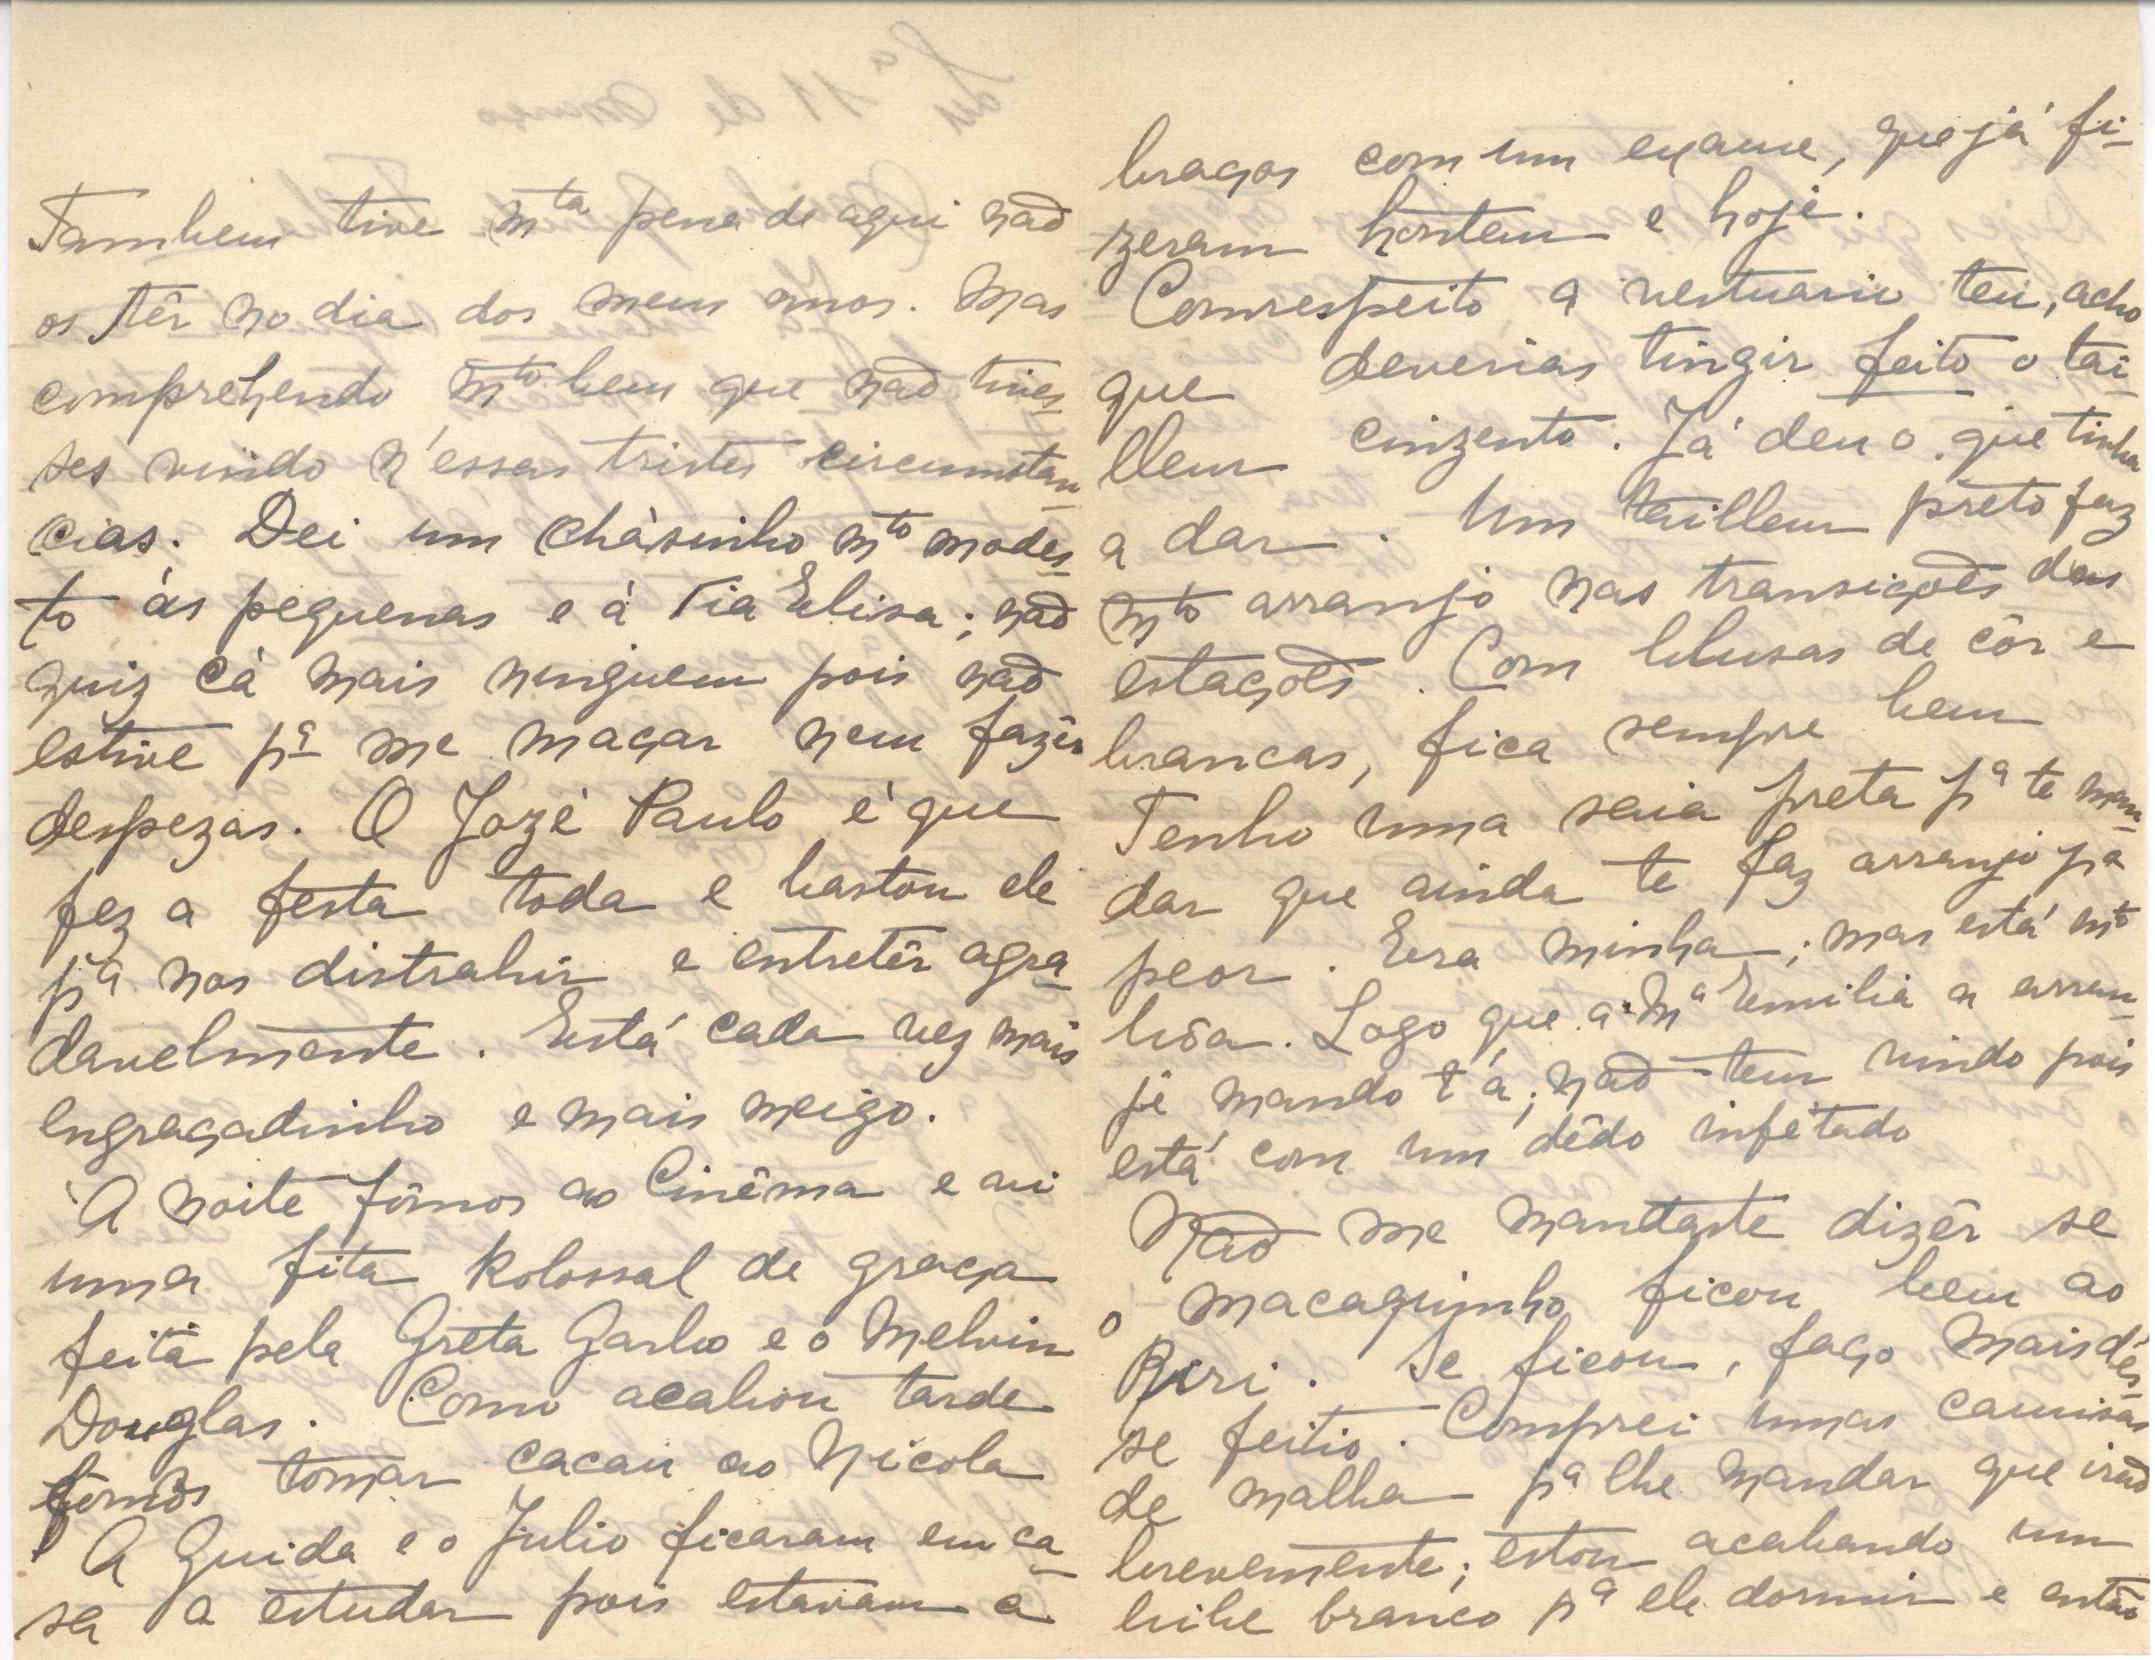 Tambem tive mta pena de aqui não
os têr no dia dos meus anos. Mas
comprehendo mto bem que não tives-
ses vindo n'essas tristes circumstan-
cias. Dei um chàsinho mto modes-
to ás pequenas e á Tia Elisa; não
quiz cá mais ninguem pois não
estive pª me maçar nem fazêr
despezas. O Jozé Paulo é que
fez a festa toda e bastou ele
pª nos distrahir e entretêr agra-
davelmente. Está cada vez mais
engraçadinho e mais meigo.
Á noite fômos ao Cinêma e vi
uma fita kolossal de graça
feita pela Greta Garbo e o Melvin
Douglas. Como acabou tarde
fômos tomar cacau ao Nicola
A Guida e o Julio ficaram em ca-
sa a estudar pois estavam a
braços com um exame, que já fi-
zeram hontem e hoje.
Com respeito a vestuario teu, acho
que deverias tingir feito o tai-
lleur cinzento. Já deu o que tinha
a dar. Um tailleur prêto faz
mto arranjo nas transições das
estações. Com blusas de côr e
brancas, fica sempre bem
Tenho uma saia preta pª te man-
dar que ainda te faz arranjo pª
peor. Era minha; mas está mto
bôa. Logo que a Mª Emilia a arran-
je mando t'a; não tem vindo pois
está com um dêdo infétado
Não me mandaste dizêr se
o macaquinho ficou bem ao
Se ficou, faço mais dês-
se feitio. Comprei umas camisas
de malha pª lhe mandar que irão
brevemente; estou acabando um
bibe branco pª ele dormir e então